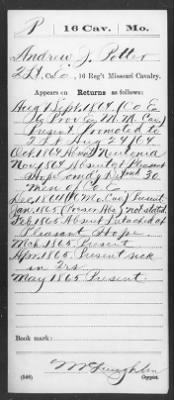 P | 16 Cav. | Mo.
Andrew J. Potter
2 Lt, Co. , 16 Reg't Missouri Cavalry.
Appears on
Returns as follows:
Aug & Sept 1864 (Co E
Pro E. M. M. Cav)
Present Promoted to
2 Lt Aug 24/64
Oct 1864 Absent
Nov 1864 Absent at Pleasant
Hope Comdg 30
men of Co E
Dec 1864 (Mo Cav) Present
Jan 1865 (Pres or Abs) not stated
Feb 1865 Absent Detached at
Pleasant Hope
Mch 1865 Present
Apr 1865 Present sick
in Qrs
May 1865 Present
Book mark:
McLaughlin
(546)
Copyist.